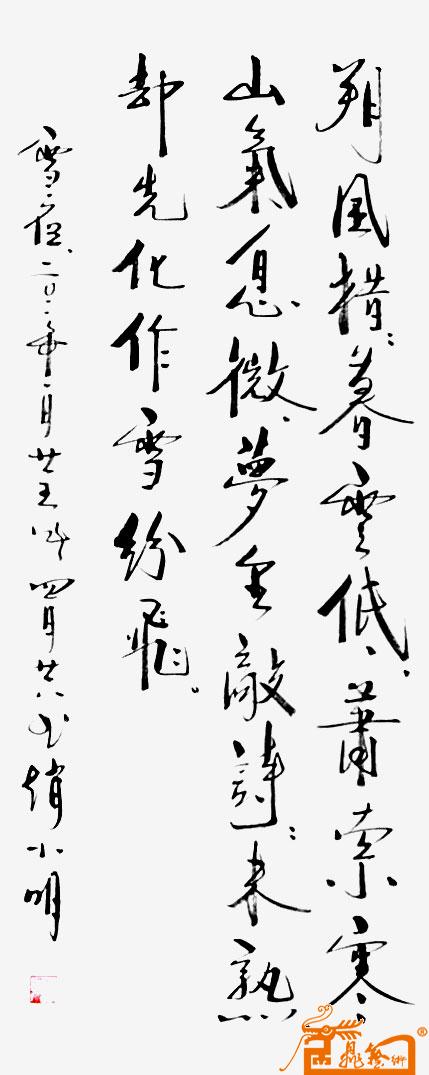 朔風猎〻暮雲低、蕭索寒
山氣息微、夢里敲詩〻未熟
却先化作雪紛飛。
雪 二〇一 年一月廿五作 四月廿六書 趙小明
鼎藝術®